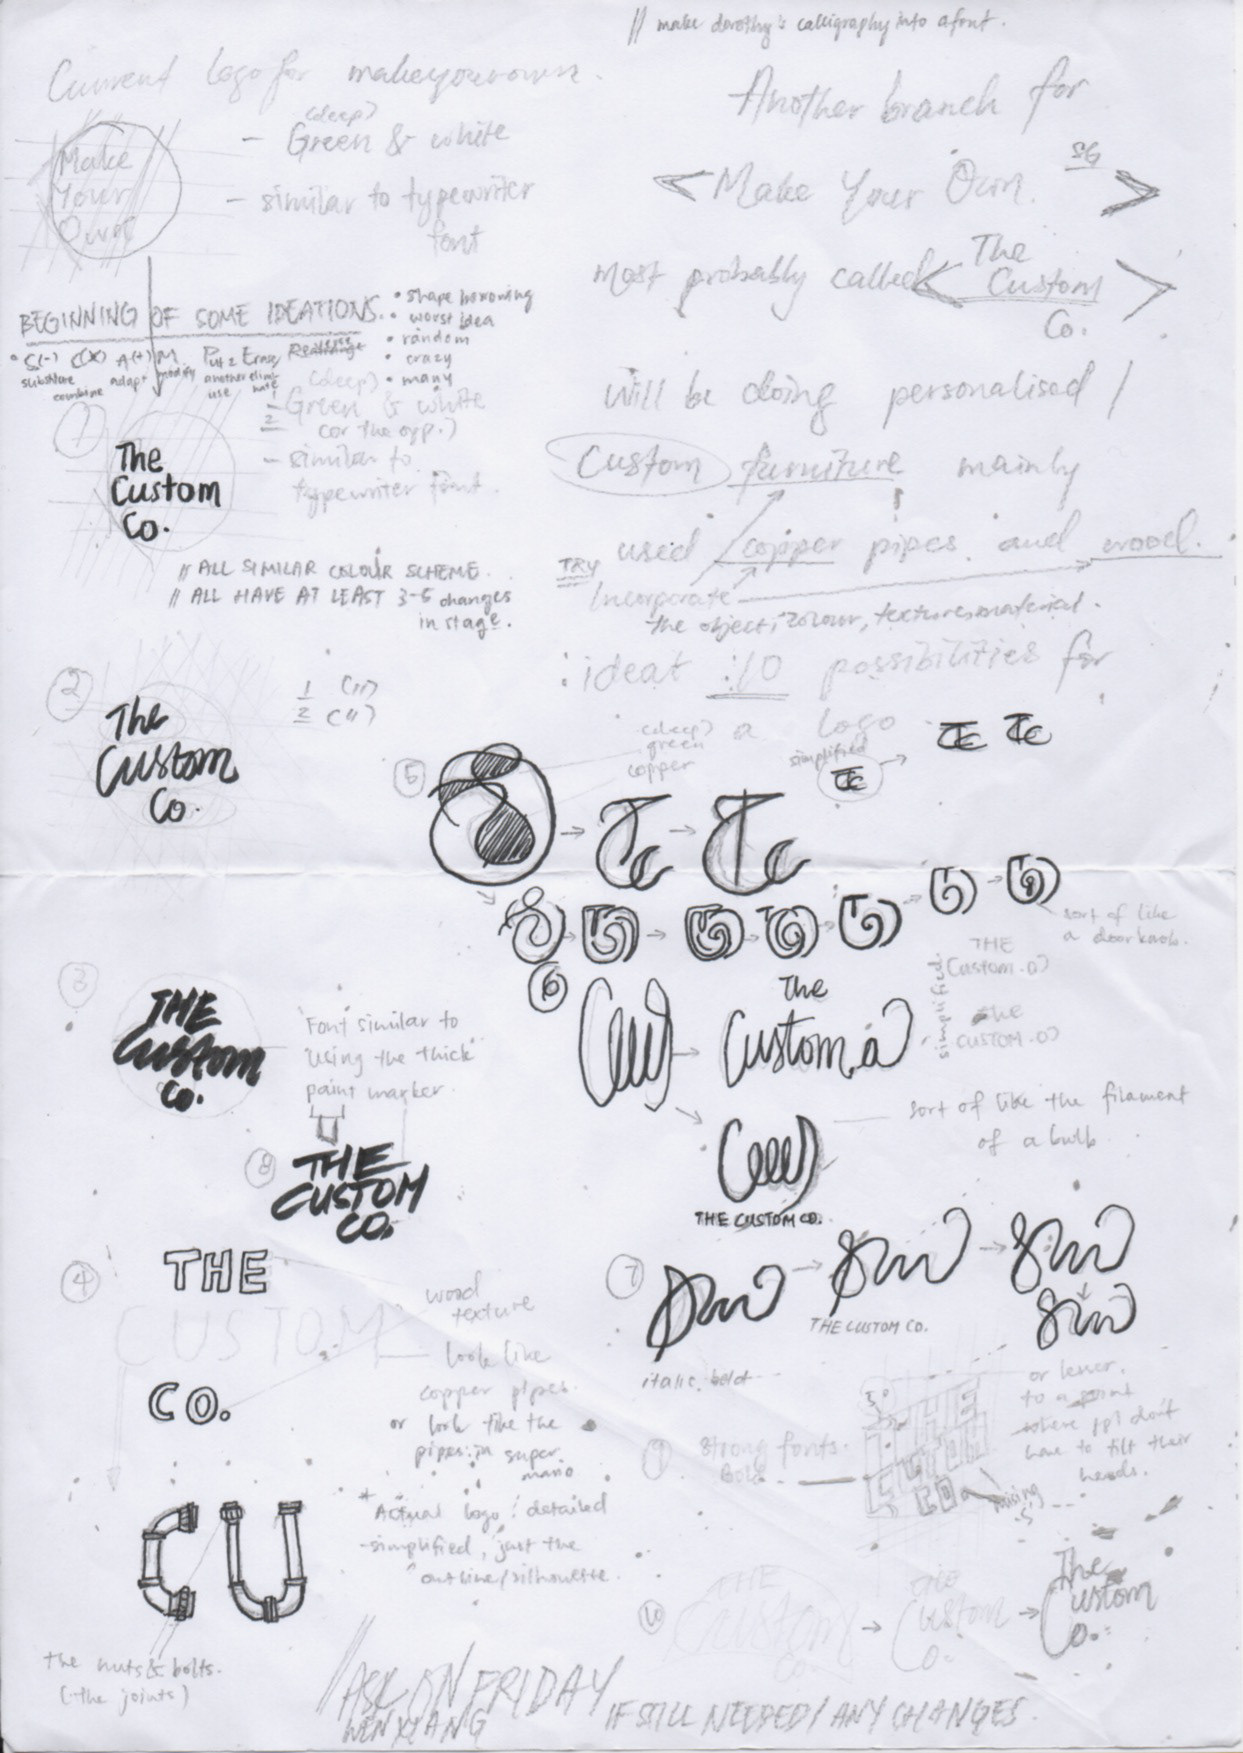 // make dorothy's calligraphy into a font.
Current logo for makeyourown.
Make
Your
Own
- (deep)
Green & white
- similar to typewriter
font
Another branch for
< Make Your Own. SG >
most probably called < The
Custom
Co. >
will be doing personalised /
Custom furniture mainly
used copper pipes and wood.
TRY
Incorporate
the object, colour, textures, material.
: ideat :10 possibilities for
a logo
BEGINNING OF SOME IDEATIONS.
• shape borrowing
• worst idea
• random
• crazy
• many
• S(-) C(x) A(+) M Put 2 Erase Rearrange
substitute combine adapt modify another use eliminate
1
The
Custom
Co.
1
2
(deep)
Green & white
(or the opp.)
- similar to
typewriter font.
// ALL SIMILAR COLOUR SCHEME.
// ALL HAVE AT LEAST 3-5 changes
in stage.
2
The
Custom
Co.
1 (")
2 (")
5
(deep)
green
copper
simplified
Tc
Tc Tc
Tc Tc
sort of like
a door knob.
3
THE
Custom
Co.
Font similar to
using the thick
paint marker.
6
The
Custom.o)
simplified.
THE
Custom.o)
The
CUSTOM.O)
sort of like the filament
of a bulb
THE CUSTOM CO.
8
THE
CUSTOM
CO.
4
THE
CUSTOM
CO.
wood
texture
look like
copper pipes.
or look like the
pipes in super
mario
* Actual logo: detailed
- simplified, just the
outline/silhouette.
CU
the nuts & bolts.
(the joints)
7
THE CUSTOM CO.
italic, bold
9
strong fonts.
Bold.
THE
CUSTOM
CO
missing
S
or lesser.
to a point
where ppl don't
have to tilt their
heads.
10
THE
Custom
Co.
The
Custom
Co.
The
Custom
Co.
// ASK ON FRIDAY
WEN XIANG
IF STILL NEEDED / ANY CHANGES.